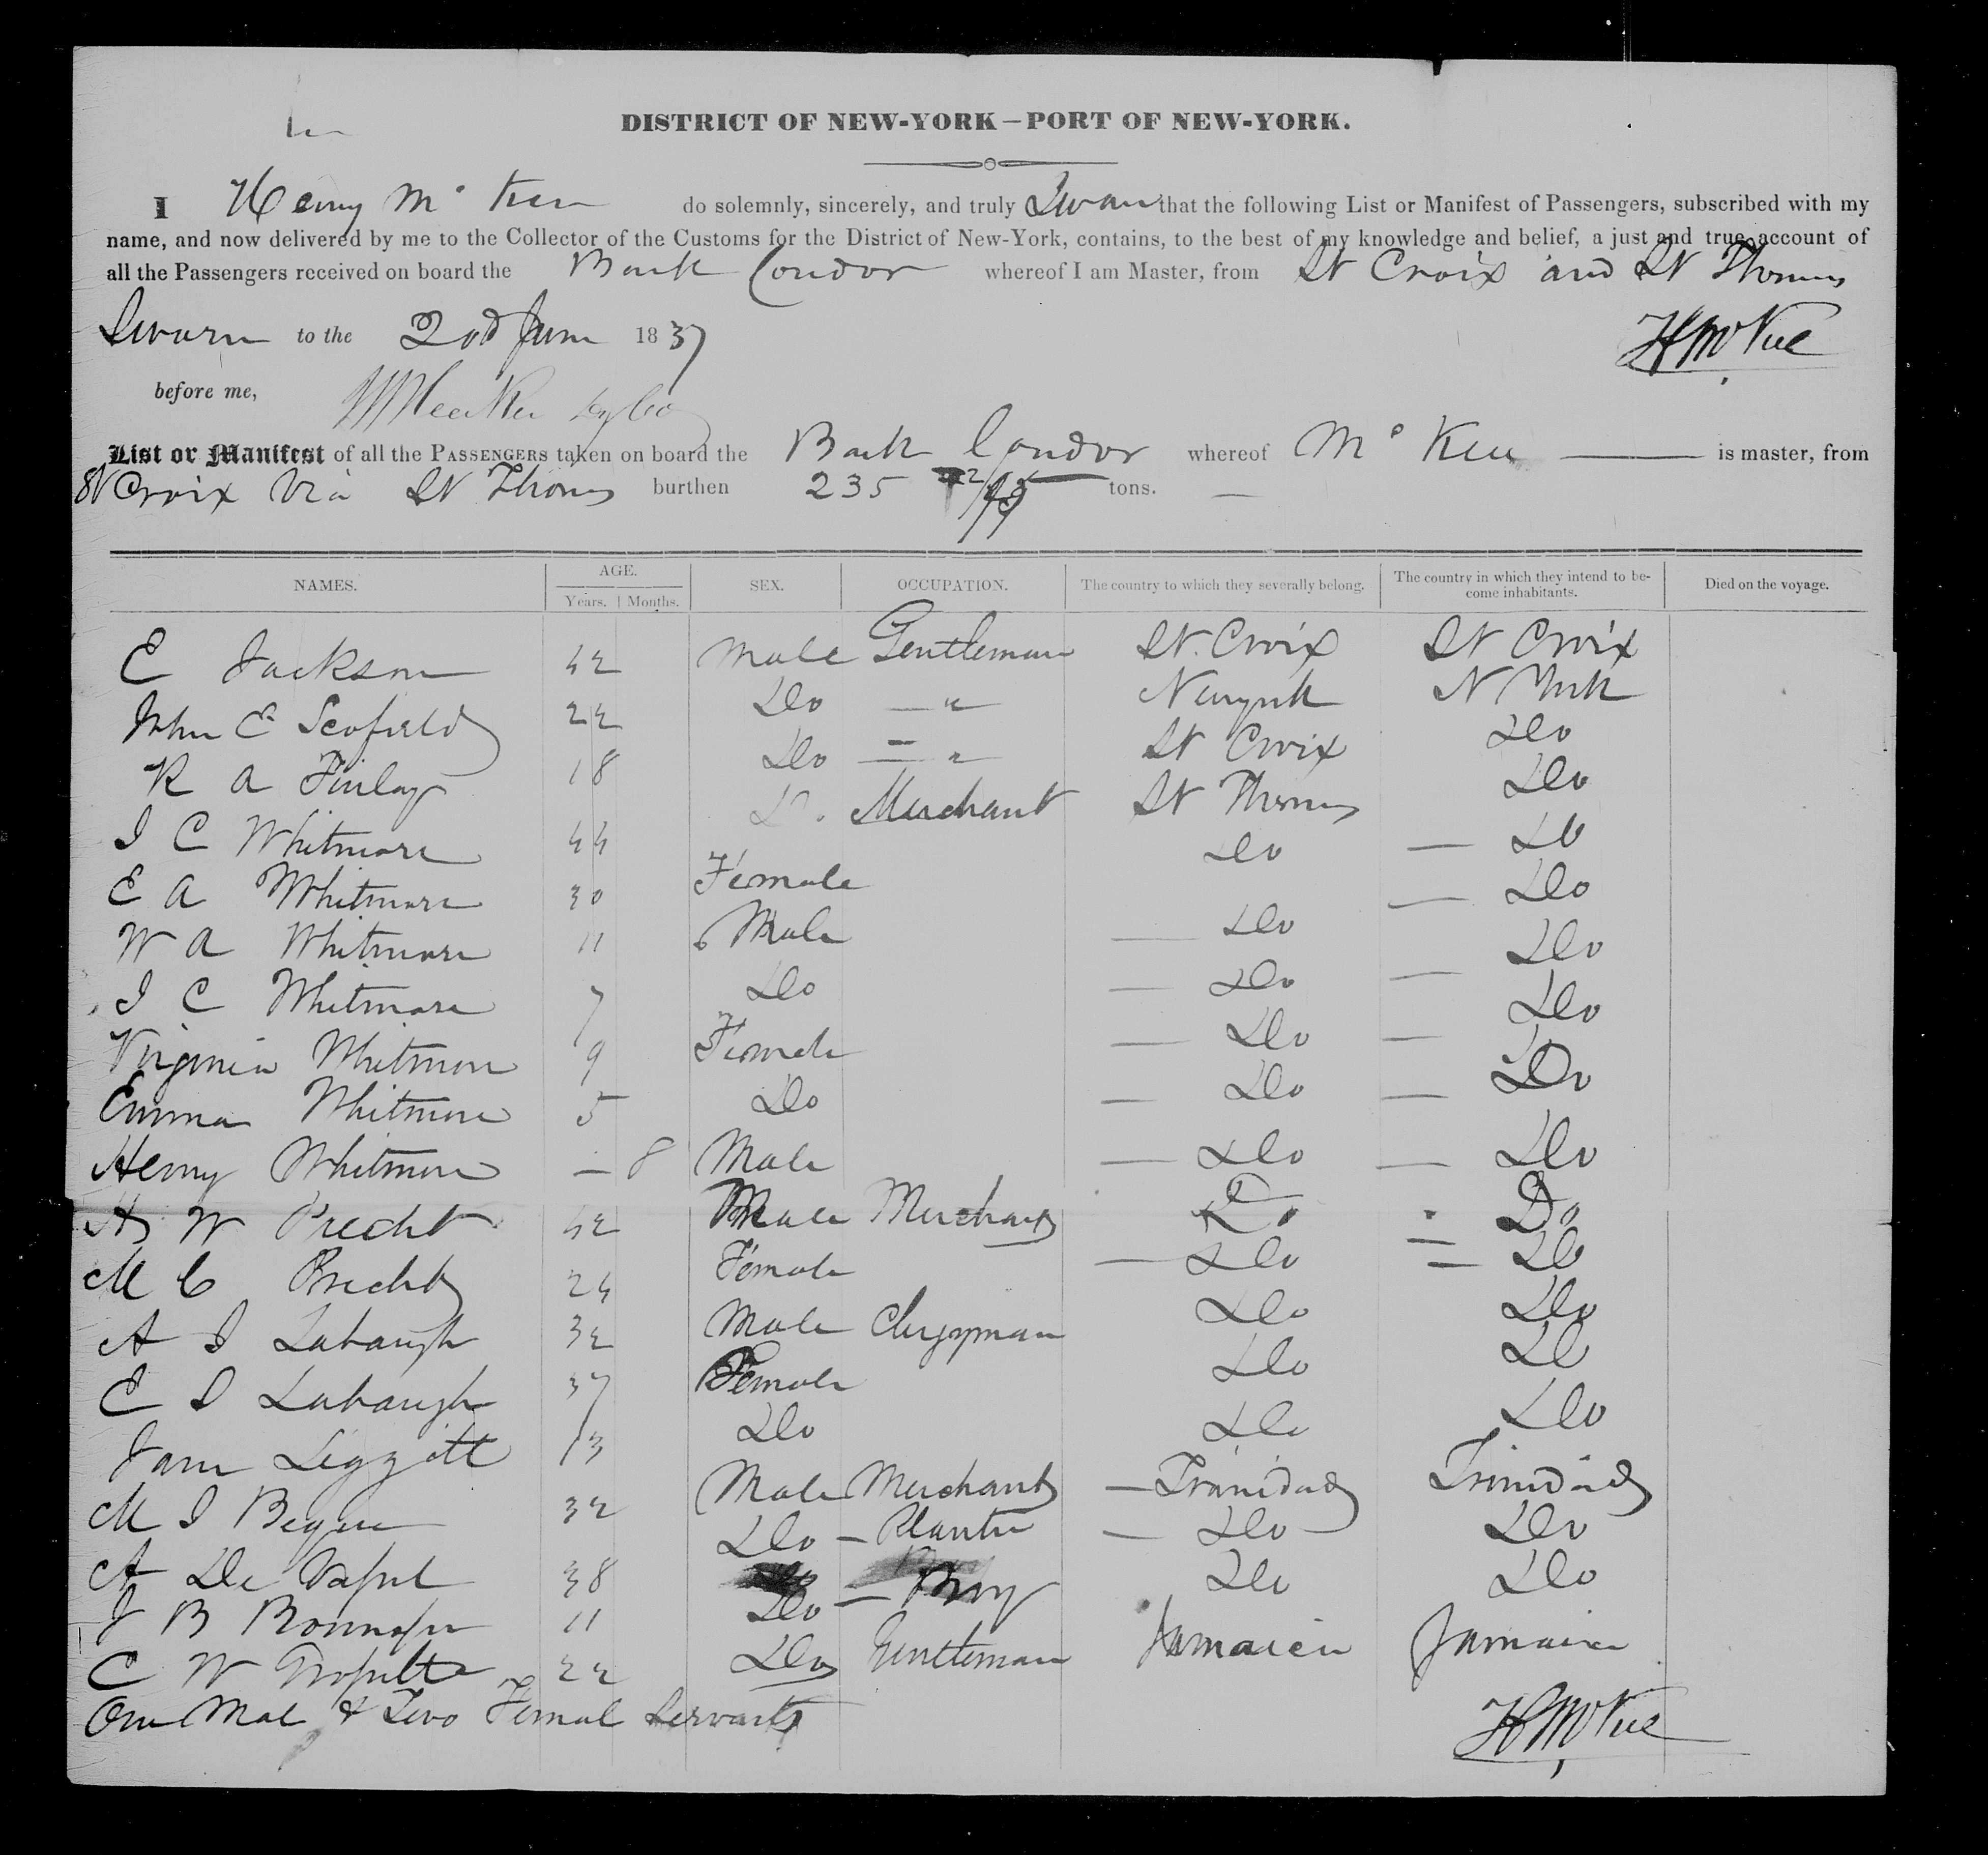 DISTRICT OF NEW-YORK—PORT OF NEW-YORK.
I Henry Mc Kee do solemnly, sincerely, and truly Swear that the following List or Manifest of Passengers, subscribed with my
name, and now delivered by me to the Collector of the Customs for the District of New-York, contains, to the best of my knowledge and belief, a just and true account of
all the Passengers received on board the Bark Condor whereof I am Master, from St Croix and St Thomas
Sworn to the 2nd June 1837 H McKee
before me,
List or Manifest of all the PASSENGERS taken on board the Bark Condor whereof Mc Kee is master, from
St Croix Via St Thomas burthen 235 /95 tons.
NAMES. AGE. SEX. OCCUPATION. The country to which they severally belong. The country in which they intend to be- Died on the voyage.
Years. Months. come inhabitants.
E Jackson 42 Male Gentleman St. Croix St Croix
John E Scofield 22 Do — " Newyork N York
R A Finlay 18 Do — " St Croix Do
J C Whitmore 44 Do. Merchant St Thomas Do
E A Whitmore 30 Female Do — Do
W A Whitmore 11 Male — Do — Do
J C Whitmore 7 Do — Do — Do
Virginia Whitmore 9 Female — Do — Do
Emma Whitmore 5 Do — Do — Do
Henry Whitmore — 8 Male — Do — Do
W Precht 42 Male Merchant Do Do
M C Precht 24 Female — Do — Do
A J Labaugh 32 Male Clergyman Do Do
E D Labaugh 37 Female Do Do
Jane Liggett 13 Do Do Do
M J 32 Male Merchant — Trinidad Trinidad
A De 38 Do — Planter — Do Do
J B 11 Do — Boy Do Do
C W 22 Do Gentleman Jamaica Jamaica
One Male & Two Female Servants H McKee